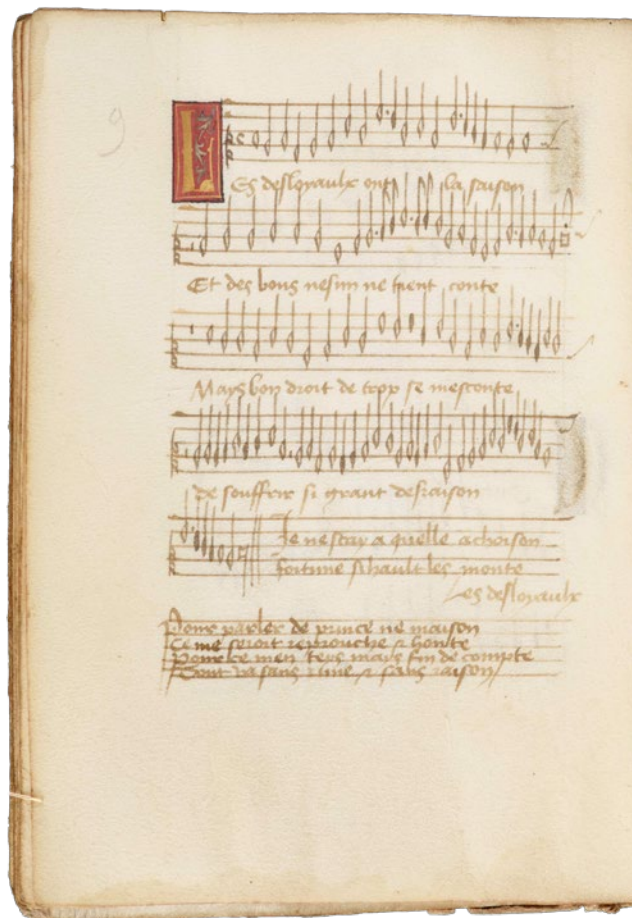 9
Les desloyaulx ont la saison
Et des bons nesun ne tient conte
Mais bon droit de trop se mesconte
de souffrir si grant desraison
Je ne scay a quelle achoison
fortune si hault les monte
Les desloyaulx
Pour parler de prince ne maison
Ce me seroit reprouche & honte
Pource men tays mais fin de compte
Tout va sans rime & sans raison